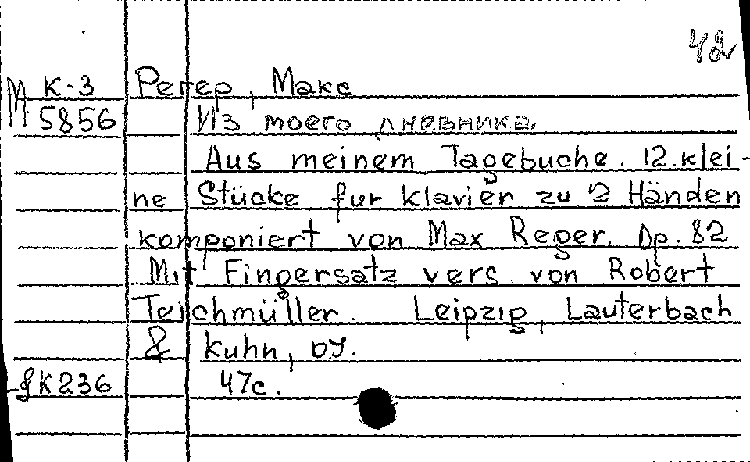 42
М К-3 Регер, Макс
5856 Из моего дневника.
Aus meinem Tagebuche. 12 klei-
ne Stücke fur Klavier zu 2 Händen
komponiert von Max Reger. Op. 82
Mit Fingersatz vers. von Robert
Teichmüller. Leipzig, Lauterbach
& Kuhn, 07.
ЯК236 47с.